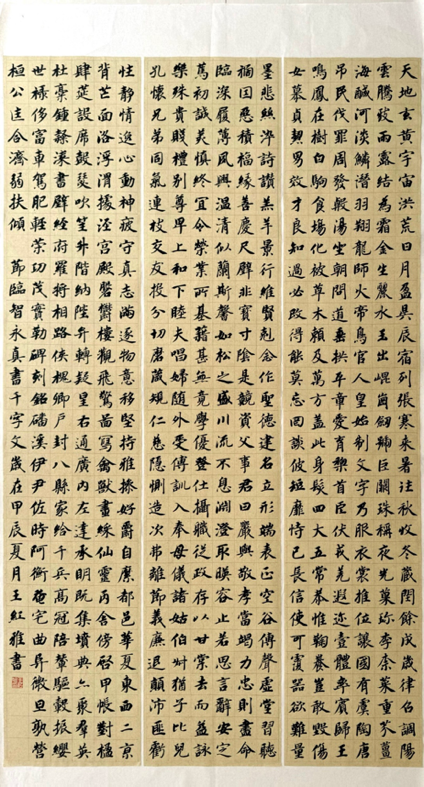 天地玄黄宇宙洪荒日月盈昃辰宿列張寒来暑往秋收冬蔵閏餘成歲律召調陽
雲騰致雨露結為霜金生麗水玉出崐崗劍號巨闕珠稱夜光菓珍李柰菜重芥薑
海醎河淡鱗潛羽翔龍師火帝鳥官人皇始制文字乃服衣裳推位讓國有虞陶唐
吊民伐罪周發殷湯坐朝問道垂拱平章愛育黎首臣伏戎羌遐迩壹體率賓歸王
鳴鳳在樹白駒食場化被草木賴及萬方盖此身髮四大五常恭惟鞠養豈敢毀傷
女慕貞絜男效才良知過必改得能莫忘罔談彼短靡恃己長信使可覆器欲難量
墨悲絲淬詩讚羔羊景行維賢剋念作聖德建名立形端表正空谷傳聲虛堂習聽
禍因惡積福緣善慶尺璧非寶寸陰是競資父事君曰嚴與敬孝當竭力忠則盡命
臨深履薄夙興溫清似蘭斯馨如松之盛川流不息淵澄取暎容止若思言辭安定
篤初誠美慎終宜令榮業所基藉甚無竟學優登仕攝職從政存以甘棠去而益詠
樂殊貴賤禮別尊卑上和下睦夫唱婦隨外受傅訓入奉母儀諸姑伯叔猶子比兒
孔懷兄弟同氣連枝交友投分切磨箴規仁慈隱惻造次弗離節義廉退顛沛匪虧
性靜情逸心動神疲守真志滿逐物意移堅持雅操好爵自縻都邑華夏東西二京
背芒面洛浮渭據涇宮殿磐鬱樓觀飛驚圖寫禽獸畫綵仙靈丙舍傍啓甲帳對楹
肆筵設席鼓瑟吹笙升階納陛弁轉疑星右通廣内左達承明既集墳典亦聚群英
杜稾鍾隸漆書壁經府羅將相路俠槐卿戶封八縣家給千兵高冠陪輦驅轂振纓
世祿侈富車駕肥輕策功茂實勒碑刻銘磻溪伊尹佐時阿衡奄宅曲阜微旦孰營
桓公匡合濟弱扶傾 節臨智永真書千字文歲在甲辰夏月王紅雅書